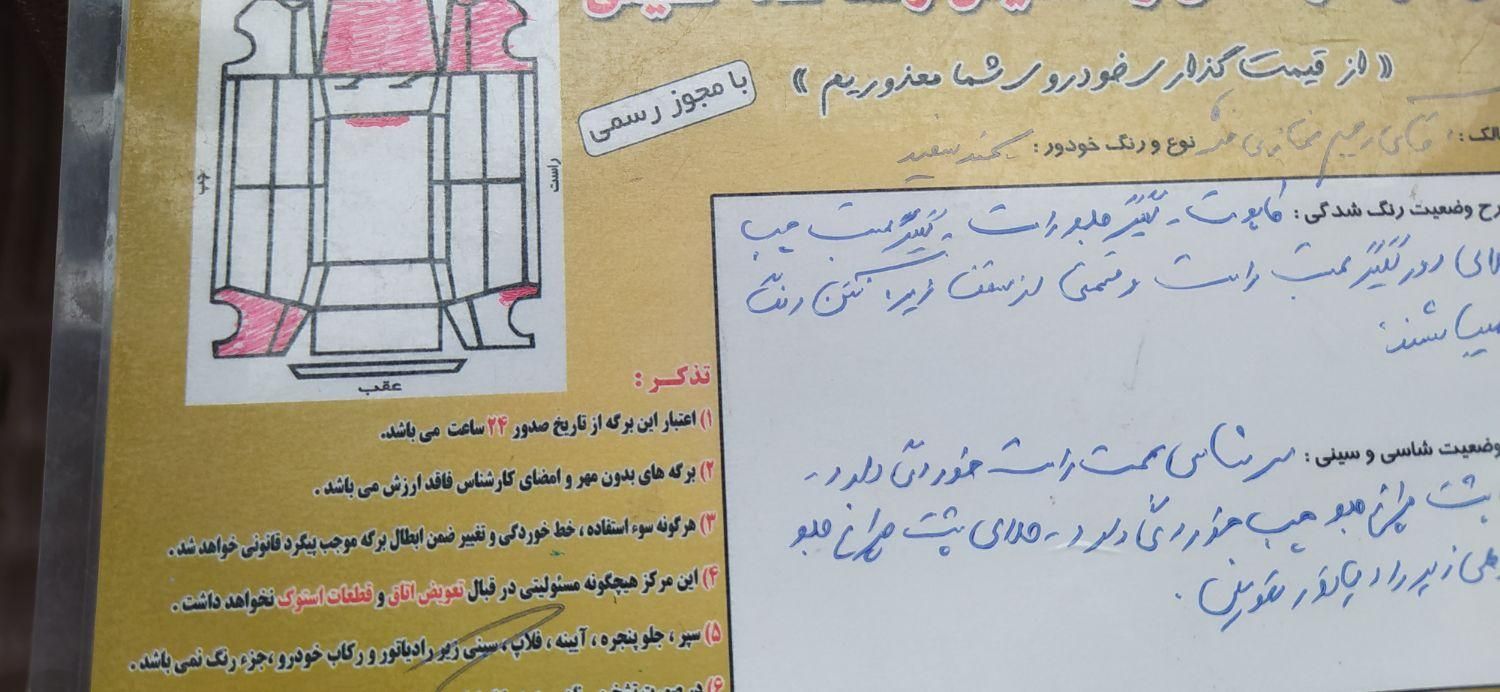 « از قیمت گذاری خودروی شما معذوریم »
با مجوز رسمی
نوع و رنگ خودور : سمند سفید
وضعیت رنگ شدگی : کاپوت - گلگیر جلو راست - گلگیر سمت چپ
دور گلگیر سمت راست و قسمتی از سقف رنگ
میباشند
وضعیت شاسی و سینی : سر شاسی سمت راست خوردگی دارد -
پشت چراغ جلو چپ خوردگی دارد - پشت چراغ جلو
زیر رادیاتور تعویض .
چپ
راست
عقب
تذکر :
۱) اعتبار این برگه از تاریخ صدور ۲۴ ساعت می باشد.
۲) برگه های بدون مهر و امضای کارشناس فاقد ارزش می باشد .
۳) هرگونه سوء استفاده ، خط خوردگی و تغییر ضمن ابطال برگه موجب پیگرد قانونی خواهد شد .
۴) این مرکز هیچگونه مسئولیتی در قبال تعویض اتاق و قطعات استوک نخواهد داشت .
۵) سپر ، جلو پنجره ، آیینه ، فلاپ ، سینی زیر رادیاتور و رکاب خودرو ،جزء رنگ نمی باشد .
۶) در صورت